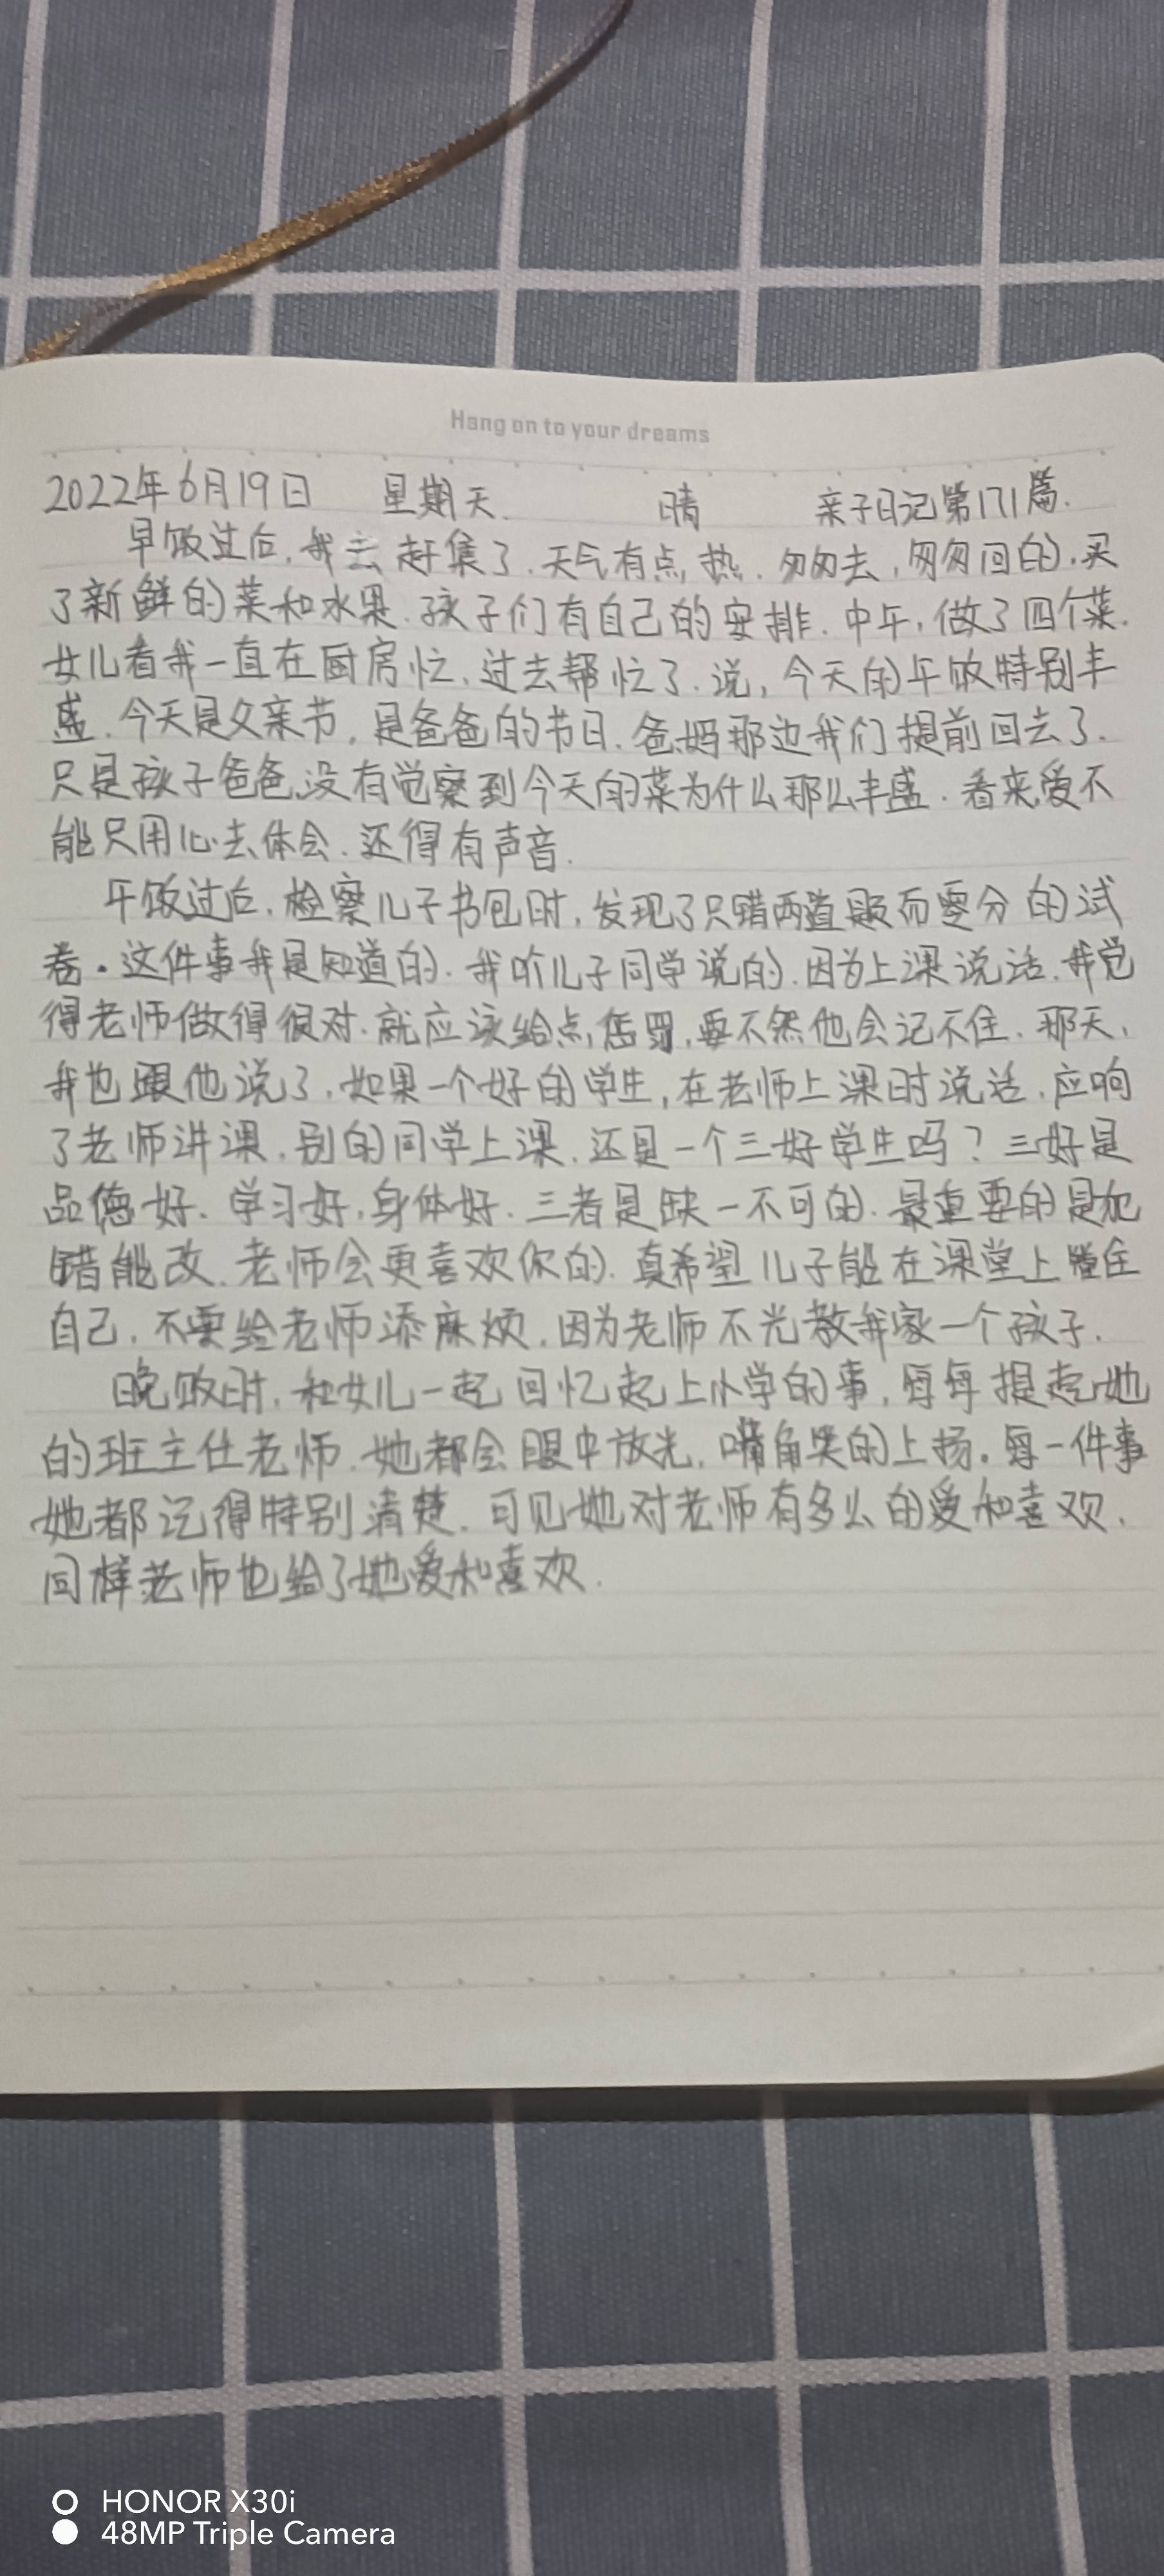 Hang on to your dreams
2022年6月19日 星期天. 晴 亲子日记第171篇.
早饭过后,我去赶集了.天气有点热.匆匆去,匆匆回的.买
了新鲜的菜和水果.孩子们有自己的安排.中午,做了四个菜.
女儿看我一直在厨房忙,过去帮忙了.说,今天的午饭特别丰
盛.今天是父亲节,是爸爸的节日.爸妈那边我们提前回去了.
只是孩子爸爸没有觉察到今天的菜为什么那么丰盛.看来爱不
能只用心去体会.还得有声音.
午饭过后,检察儿子书包时,发现了只错两道题而零分的试
卷.这件事我是知道的.我听儿子同学说的.因为上课说话.我觉
得老师做得很对.就应该给点惩罚,要不然他会记不住.那天,
我也跟他说了.如果一个好的学生,在老师上课时说话.应响
了老师讲课.别的同学上课.还是一个三好学生吗?三好是
品德好.学习好,身体好.三者是缺一不可的.最重要的是犯
错能改.老师会更喜欢你的.真希望儿子能在课堂上管住
自己.不要给老师添麻烦.因为老师不光教我家一个孩子.
晚饭时,和女儿一起回忆起上小学的事,每每提起她
的班主任老师.她都会眼中放光,嘴角笑的上扬.每一件事
她都记得特别清楚.可见她对老师有多么的爱和喜欢.
同样老师也给了她爱和喜欢.
HONOR X30i
48MP Triple Camera